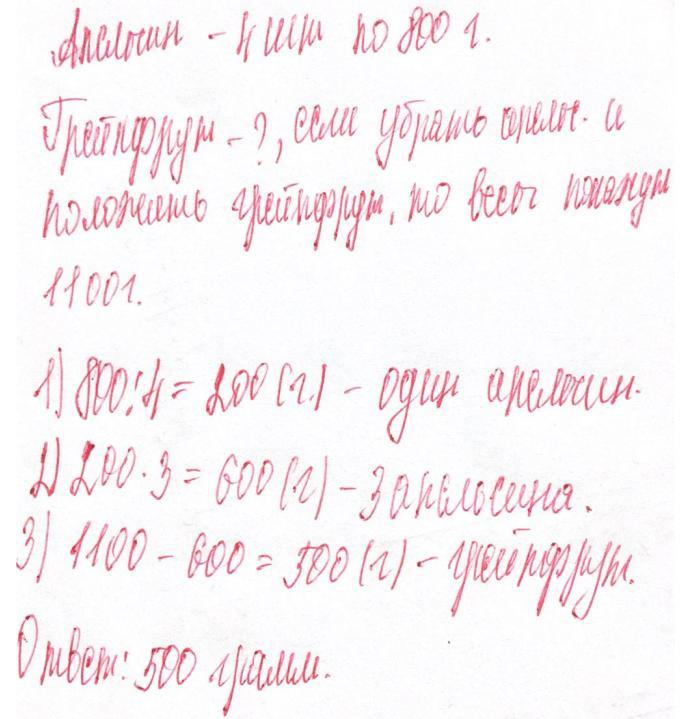 Апельсин - 4 шт по 800 г.
Грейпфрут - ?, если убрать апельс. и
положить грейпфрут, то весы покажут
1100г.
1) 800:4 = 200 (г.) - один апельсин.
2) 200 · 3 = 600 (г) - 3 апельсина.
3) 1100 - 600 = 500 (г) - грейпфрут.
Ответ: 500 грамм.